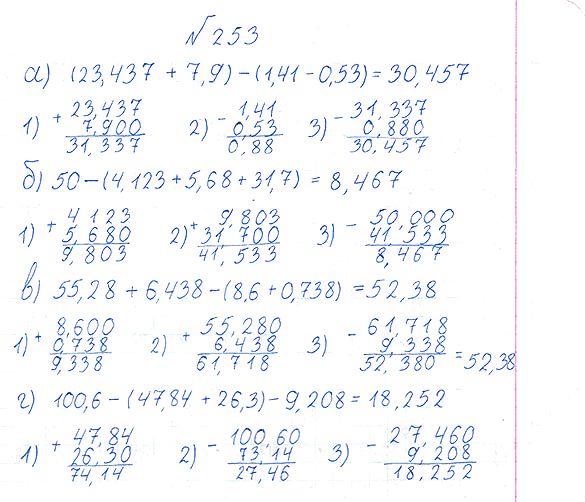 № 253
а) (23,437 + 7,9) – (1,41 – 0,53) = 30,457
1) + 23,437 2) – 1,41 3) – 31,337
7,900 0,53 0,880
31,337 0,88 30,457
б) 50 – (4,123 + 5,68 + 31,7) = 8,467
1) + 4 123 2) + 9,803 3) – 50,000
5,680 31,700 41,533
9,803 41,533 8,467
в) 55,28 + 6,438 – (8,6 + 0,738) = 52,38
1) + 8,600 2) + 55,280 3) – 61,718
0,738 6,438 9,338
9,338 61,718 52,380 = 52,38
г) 100,6 – (47,84 + 26,3) – 9,208 = 18,252
1) + 47,84 2) – 100,60 3) – 27,460
26,30 73,14 9,208
74,14 27,46 18,252